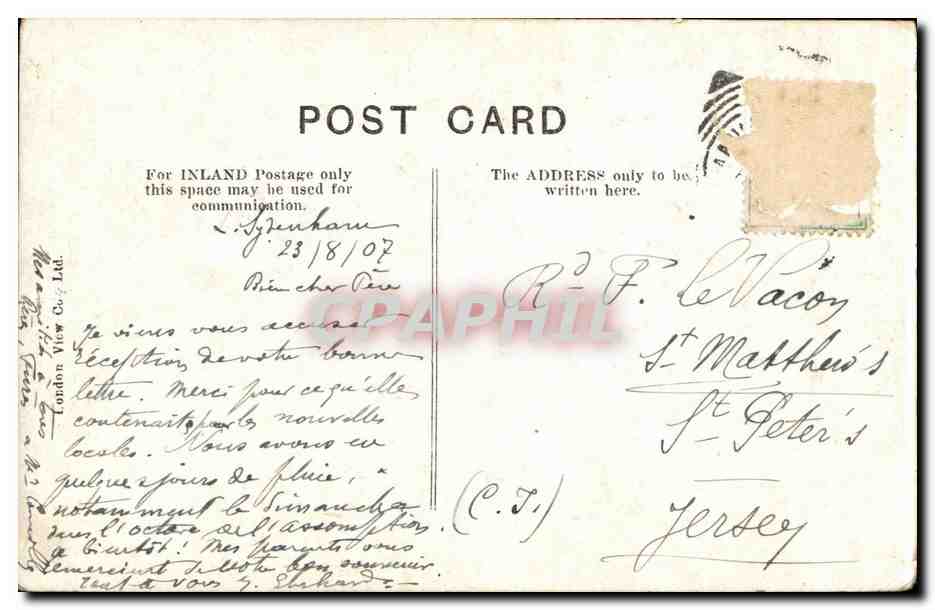 POST CARD
For INLAND Postage only
this space may be used for
communication.
The ADDRESS only to be
written here.
L. Sydenham
23/8/07
Bien cher Père
Je viens vous accuser
réception de votre bonne
lettre. Merci pour ce qu'elle
contenait, pour les nouvelles
locales. Nous avons eu
quelques jours de pluie,
notamment le Dimanche
dans l'octave de l'assomption.
à bientôt! Mes parents vous
remercient de votre bon souvenir.
tout à vous
Mes amitiés à tous
London View Co., Ltd.
Rd F. le Vacon
St Matthew's
St Peter's
(C.I.)
Jersey
CPAPHIL